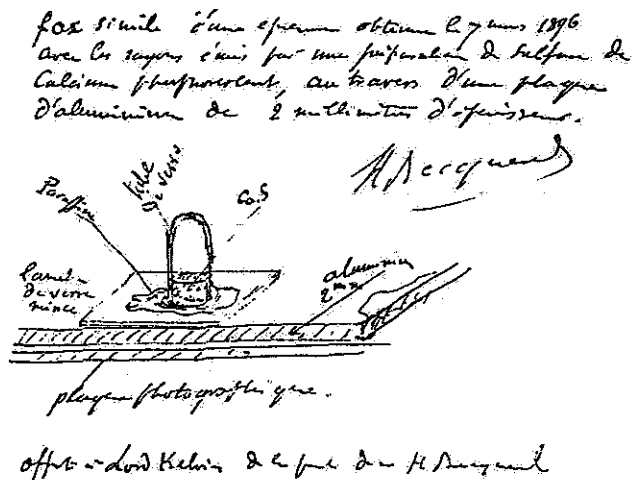 fac simile d'une epreuve obtenue le 7 mars 1896
avec les rayons émis par une préparation de sulfure de
Calcium phosphorescent, au travers d'une plaque
d'aluminium de 2 millimètres d'épaisseur.
H Becquerel
Paraffine
tube
de verre
CaS
lamelle
de verre
mince
aluminium
2 mm
plaque photographique.
offert à Lord Kelvin de la part de H Becquerel